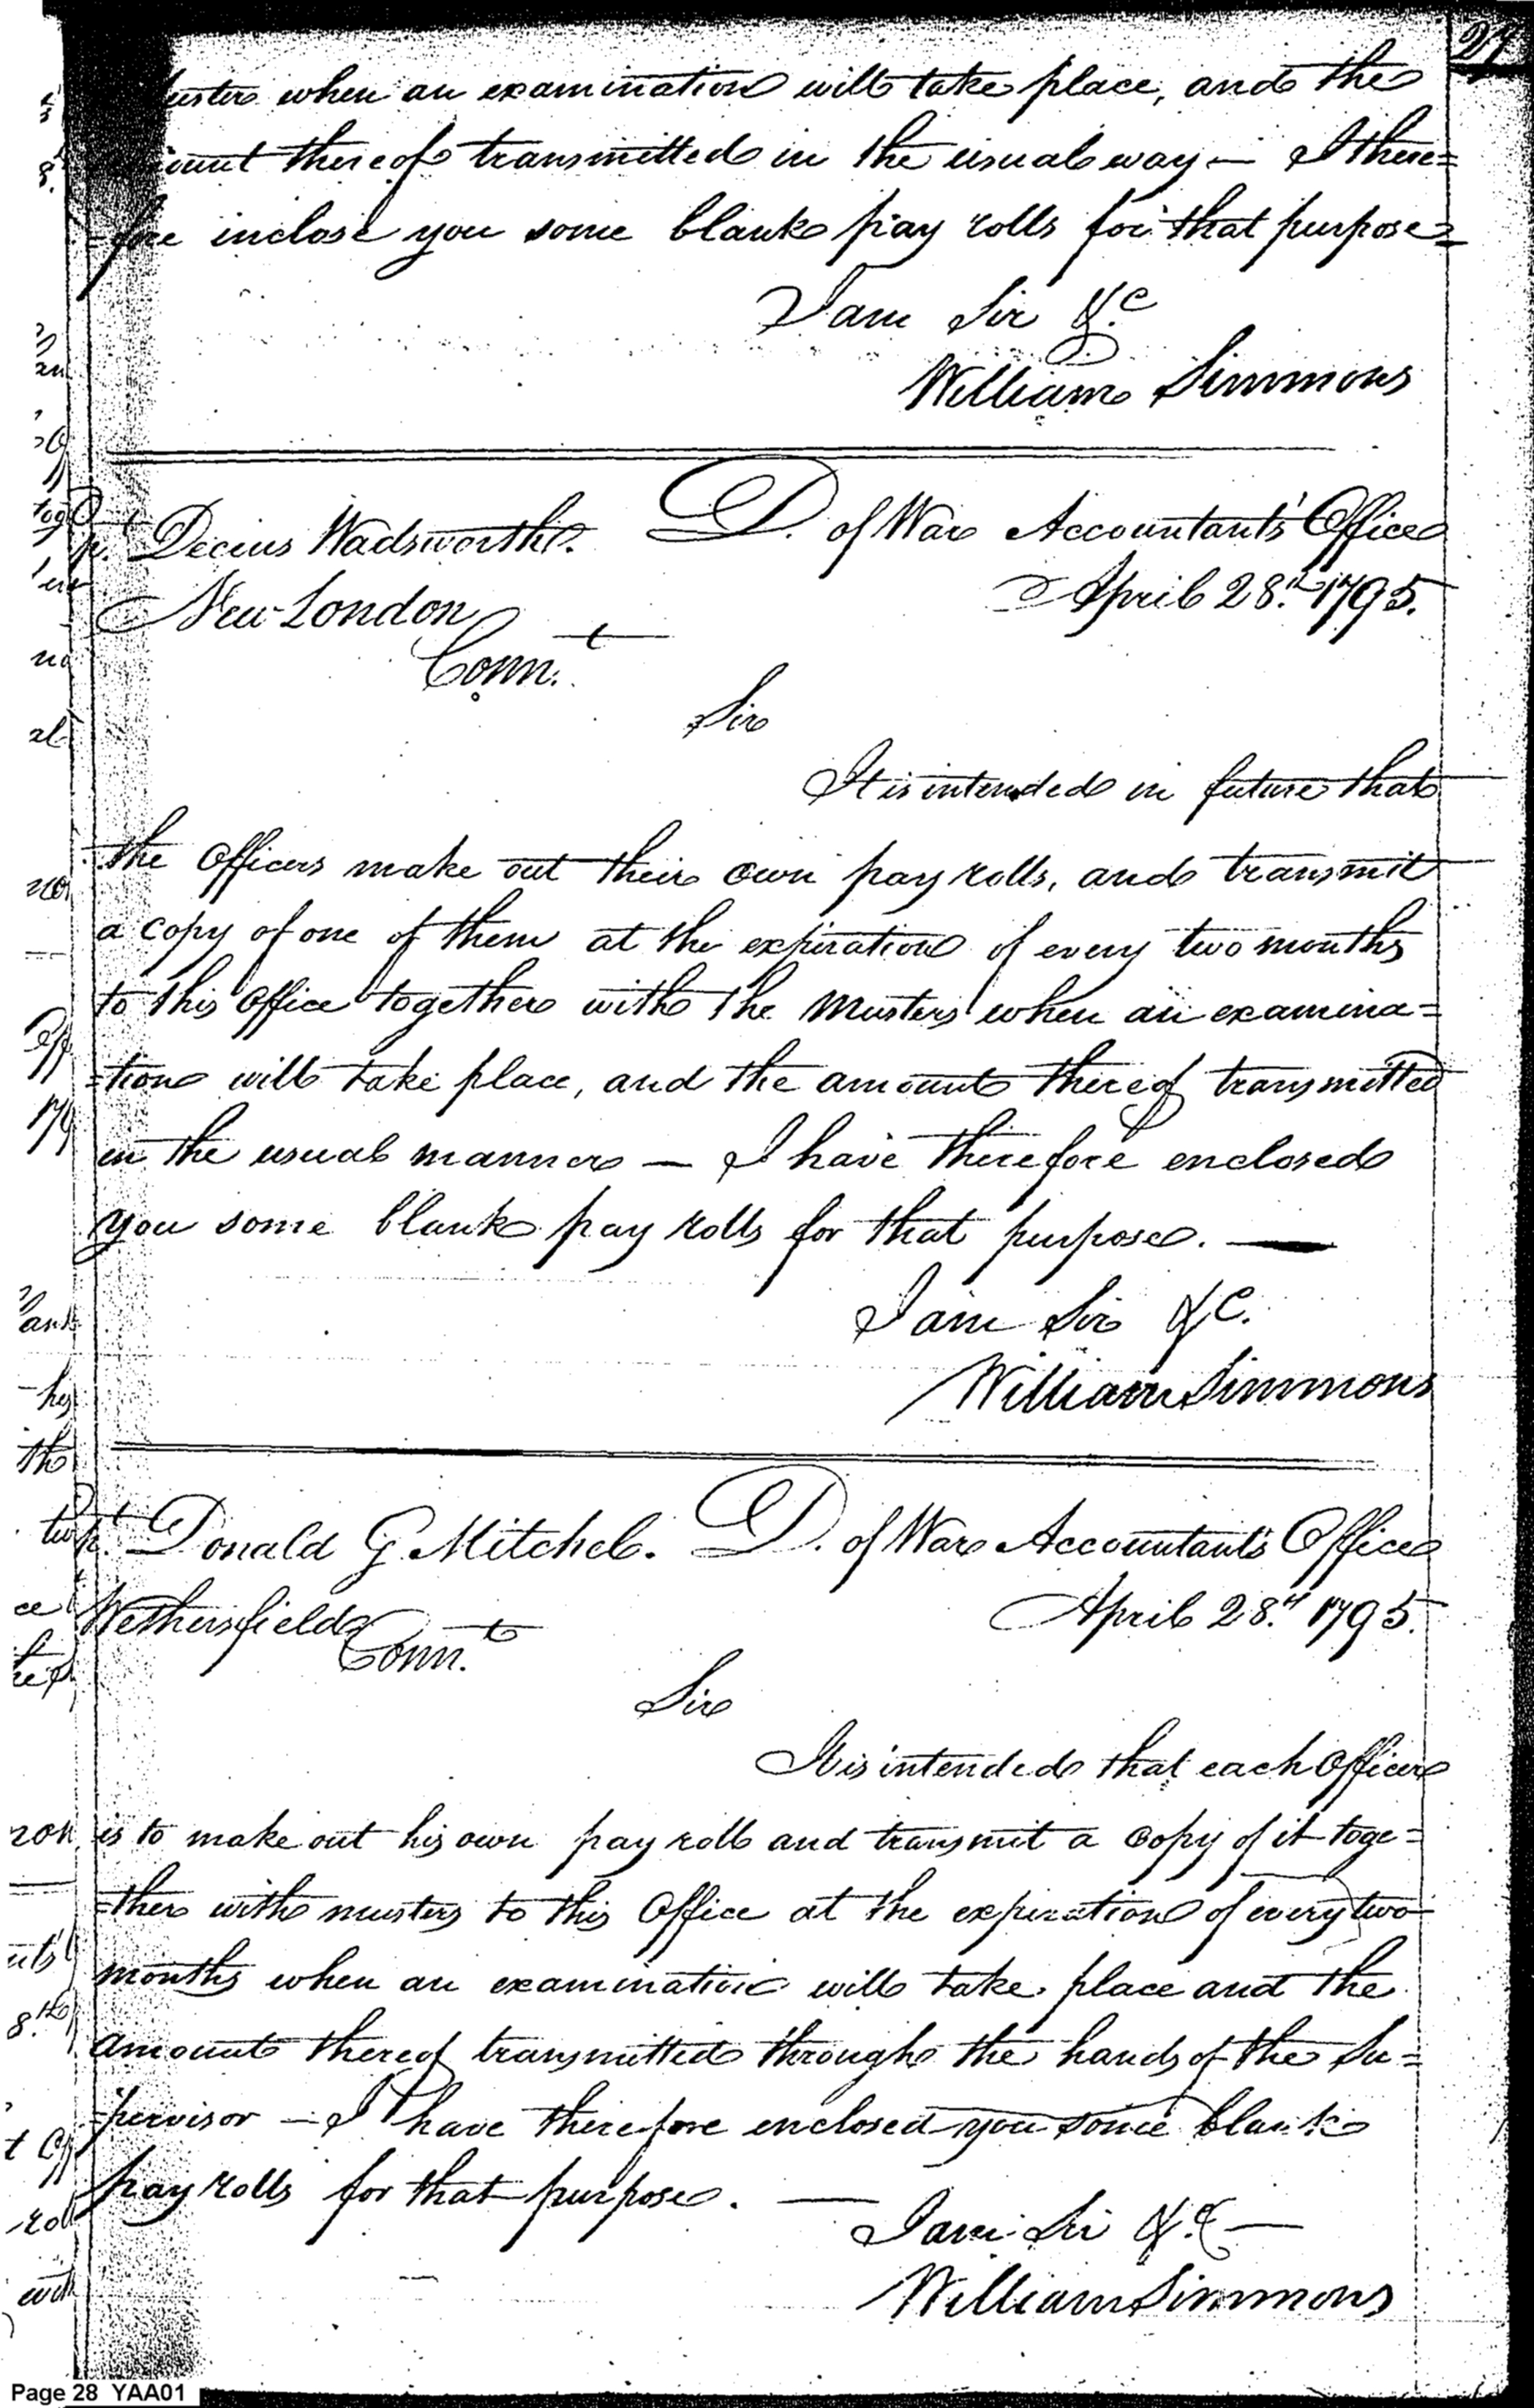 27
when an examination will take place, and the
thereof transmitted in the usual way — I there=
=fore inclose you some blank pay rolls for that purpose=
I am Sir &c
William Simmons
Decius Wadsworth. D. of War Accountant's Office
New London April 28.th 1795.
Conn.t
Sir
It is intended in future that
the Officers make out their own pay rolls, and transmit
a copy of one of them at the expiration of every two months
to this Office together with the Musters when an examina=
=tion will take place, and the amount thereof transmitted
in the usual manner — I have therefore enclosed
you some blank pay rolls for that purpose. —
I am Sir &c.
William Simmons
Donald G Mitchel. D. of War Accountant's Office
Wethersfield April 28.th 1795.
Conn.t
Sir
It is intended that each Officer
is to make out his own pay roll and transmit a copy of it toge=
=ther with musters to this Office at the expiration of every two
months when an examination will take place and the
amount thereof transmitted through the hands of the Su=
=pervisor — I have therefore enclosed you some blank
pay rolls for that purpose. —
I am Sir &c —
William Simmons
Page 28 YAA01